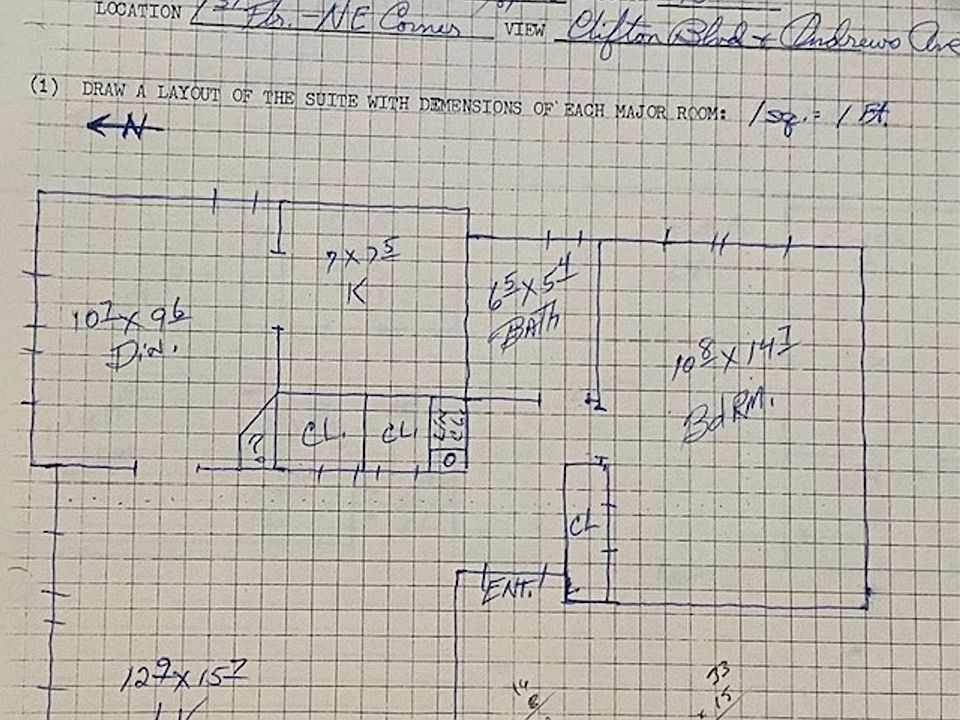 LOCATION 1st Flr. - NE Corner VIEW Clifton Blvd + Andrews Ave
(1) DRAW A LAYOUT OF THE SUITE WITH DEMENSIONS OF EACH MAJOR ROOM: 1 sq. = 1 Ft.
← N
7 x 7 5
K
6 5 x 5 4
BATH
10 7 x 9 6
Din.
10 8 x 14 7
Bd RM.
CL.
CL.
?
O
CL
ENT.
12 9 x 15 7
14
33
15